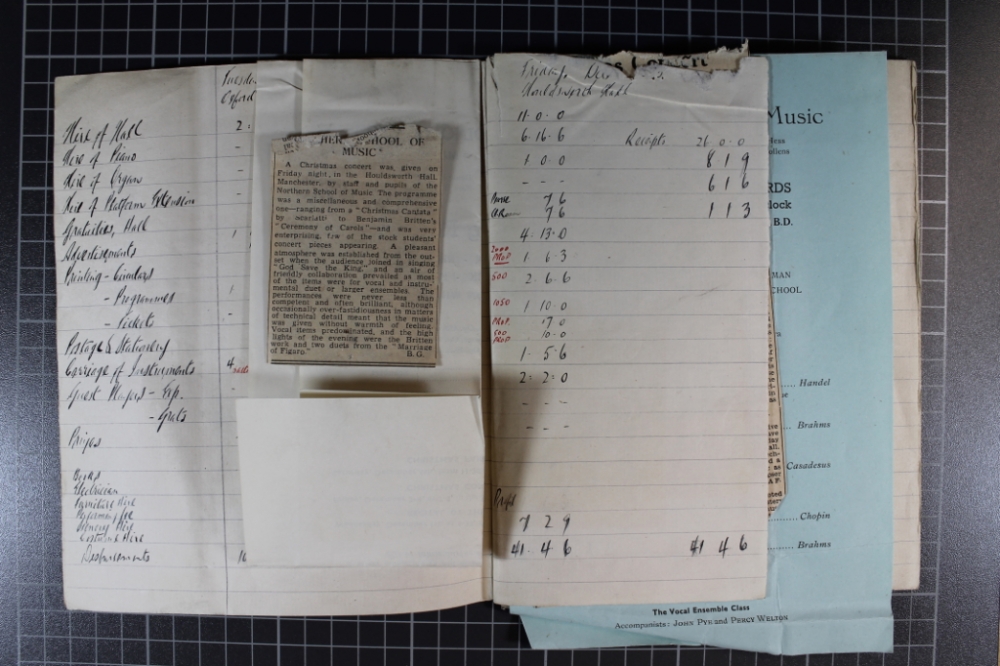 Tuesda
Oxford
Hire of Hall 2
Hire of Piano -
Hire of Organ -
Hire of Platform Extension
Gratuities, Hall 1
Advertisements
Printing - Circulars
- Programmes 1
- Tickets -
Postage & Stationery
Carriage of Instruments 4
Guest Players - Exp.
- Grats
Prizes
Electrician
Furniture Hire
Performing Fee
Costume Hire
Disbursements 16
HERN SCHOOL OF
MUSIC"
A Christmas concert was given on
Friday night, in the Houldsworth Hall,
Manchester, by staff and pupils of the
Northern School of Music. The programme
was a miscellaneous and comprehensive
one—ranging from a "Christmas Cantata"
by Scarlatti to Benjamin Britten's
"Ceremony of Carols"—and was very
enterprising, few of the stock students'
concert pieces appearing. A pleasant
atmosphere was established from the out-
set when the audience joined in singing
"God Save the King," and an air of
friendly collaboration prevailed as most
of the items were for vocal and instru-
mental duet or larger ensembles. The
performances were never less than
competent and often brilliant, although
occasionally over-fastidiousness in matters
of technical detail meant that the music
was given without warmth of feeling.
Vocal items predominated, and the high
lights of the evening were the Britten
work and two duets from the "Marriage
of Figaro." B.G.
Friday, Dec
Houldsworth Hall
11. 0. 0
6. 16. 6 Receipts 21 0. 0
1. 0. 0 8 1 9
- - - 6 1 6
7 6 1 1 3
7 6
4. 13. 0
1. 6. 3
500 2. 6. 6
1050 1 10. 0
17 0
500 10. 0
1. 5. 6
2. 2. 0
- - -
- - -
7 2 9
41. 4 6 41 4 6
Music
Hess
RDS
lock
B.D.
MAN
SCHOOL
Handel
Brahms
Casadesus
Chopin
Brahms
The Vocal Ensemble Class
Accompanists: JOHN PYE and PERCY WELTON